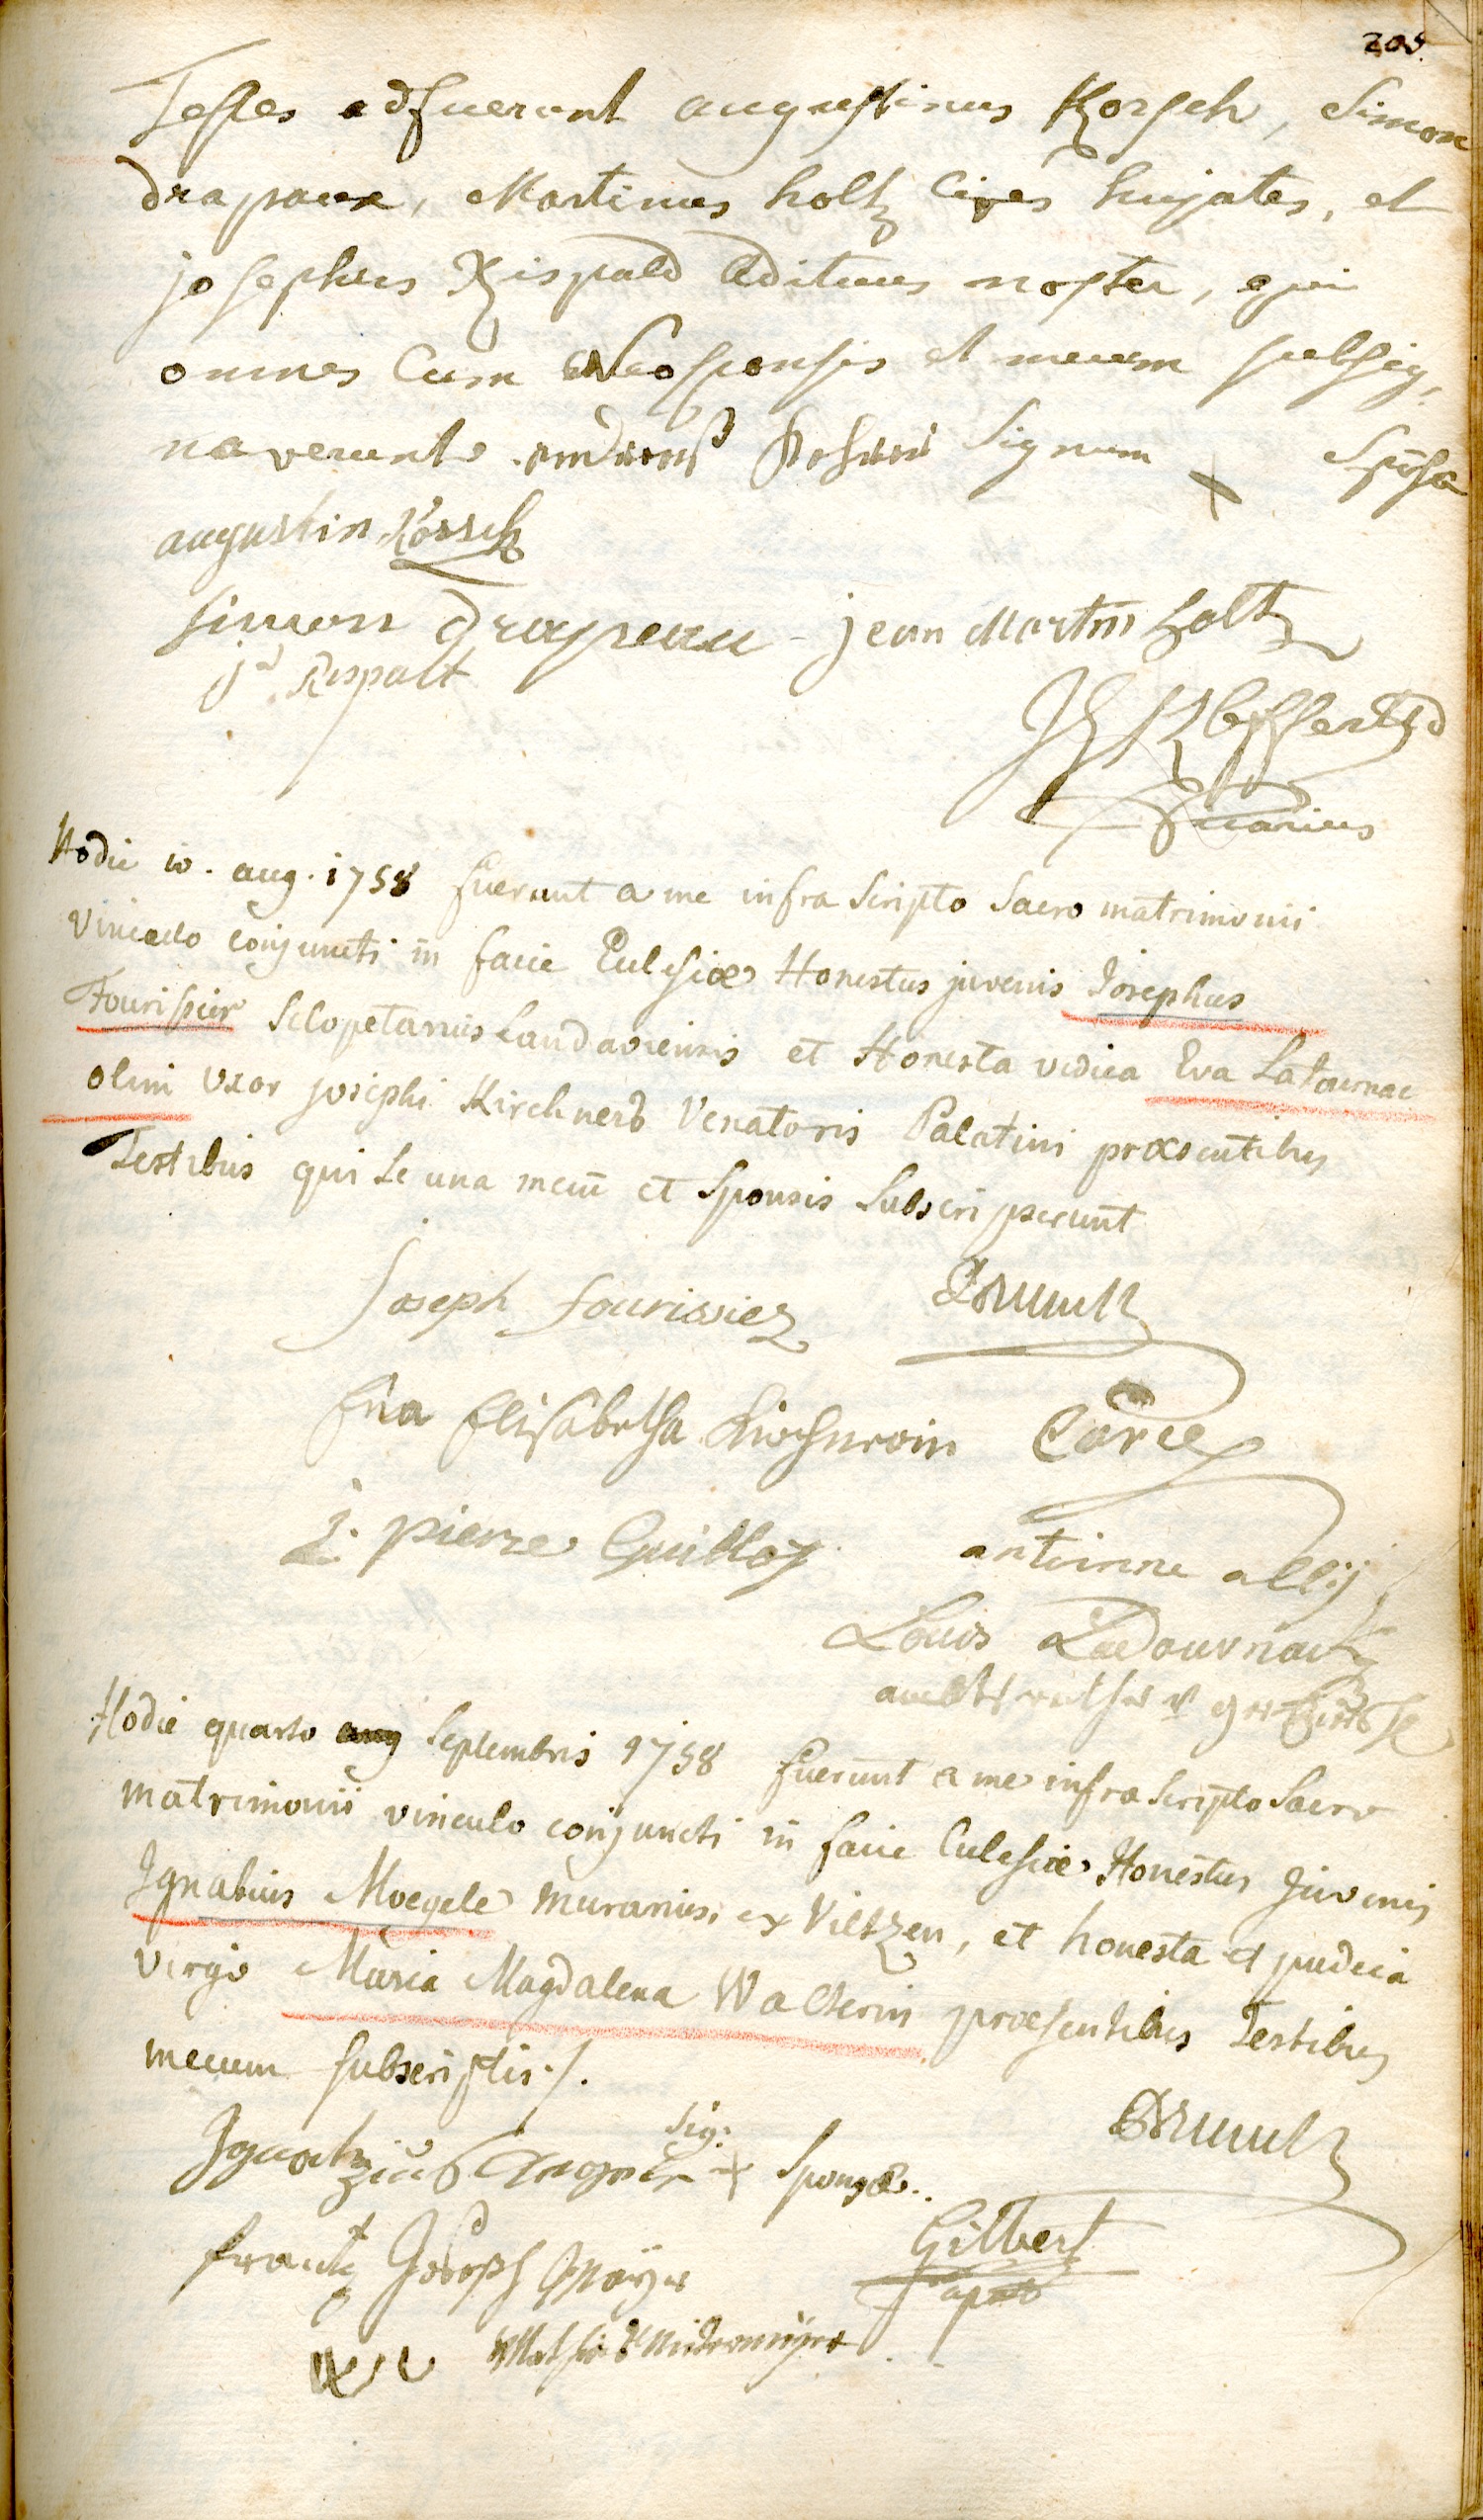 205.
Testes adfuerunt augustinus Korsch, Simon
drapaux, Martinus holtz Cives hujates, et
josephus Rispald Ædituus noster, qui
omnes Cum Neosponsis et mecum subsig,
naverunt. Signum + Spōsa
augustin Korsch
simon drapeau - jean Martin holtz
j. Rispalt
Vicarius
Hodie 10. aug. 1758 fuerunt a me infra Scripto Sacro matrimonii
Vinculo conjuncti in facie Eclesiæ Honestus juvenis Josephus
Fourisier Sclopetarius Landaviensis et Honesta vidua Eva Latournac
olim Uxor josephi Kirchners Venatoris Palatini præsentibus
Testibus qui se una mecū et Sponsis Subscripserunt
Joseph fourissiez
Eva Elisabetha Kirchnerin Carie
j. pierre Guilloz antoinne ally
Louis Ladournac
Hodie quarto aug Septembris 1758 fuerunt a me infra Scripto Sacro
matrimonii vinculo conjuncti in facie Eclesiæ Honestus Juvenis
Ignatius Moegele Murarius ex Viltzen, et honesta et pudica
virgo Maria Magdalena Walterin præsentibus Testibus
mecum subscriptis ·/.
Sig:
Ignatzius + Sponsæ..
frantz Joseph Mayer Gilbert